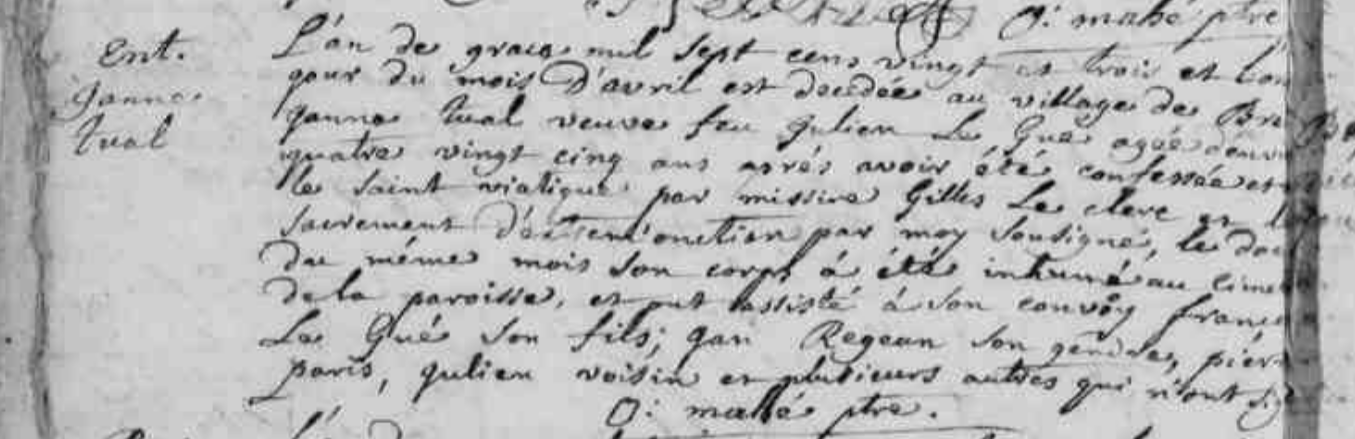 O: mahé ptre
Ent.
Janne
Tual
L'an de grace mil sept cens vingt et trois et l'on
jour du mois d'avril est decedée au village de Bre
Janne Tual veuve feu Julien Le Gué agée d'envi
quatre vingt cinq ans aprés avoir été confessée et
le saint viatique par missire Gilles Le clerc et le
sacrement d'extrem'onction par moy soussigné, le dou
du méme mois son corps à été inhumé au cime
de la paroisse, et ont assisté à son convoy franç
Le Gué son fils; Jan Regean son gendre, pierr
paris, Julien voisin et plusieurs autres qui n'ont si
O: mahé ptre.